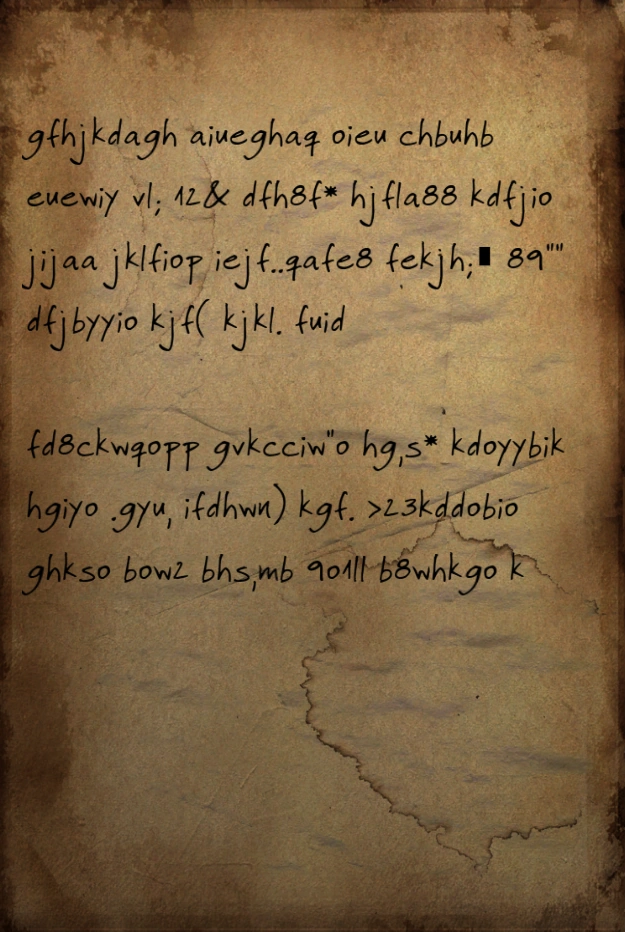 gfhjkdagh aiueghaq oieu chbuhb
euewiy vl; 12& dfh8f* hjfla88 kdfjio
jijaa jklfiop iejf..qafe8 fekjh; 89""
dfjbyyio kjf( kjkl. fuid
fd8ckwqopp gvkcciw"o hg,s* kdoyybik
hgiyo .gyu, ifdhwn) kgf. >23kddobio
ghkso bow2 bhs,mb 901ll b8whkgo k